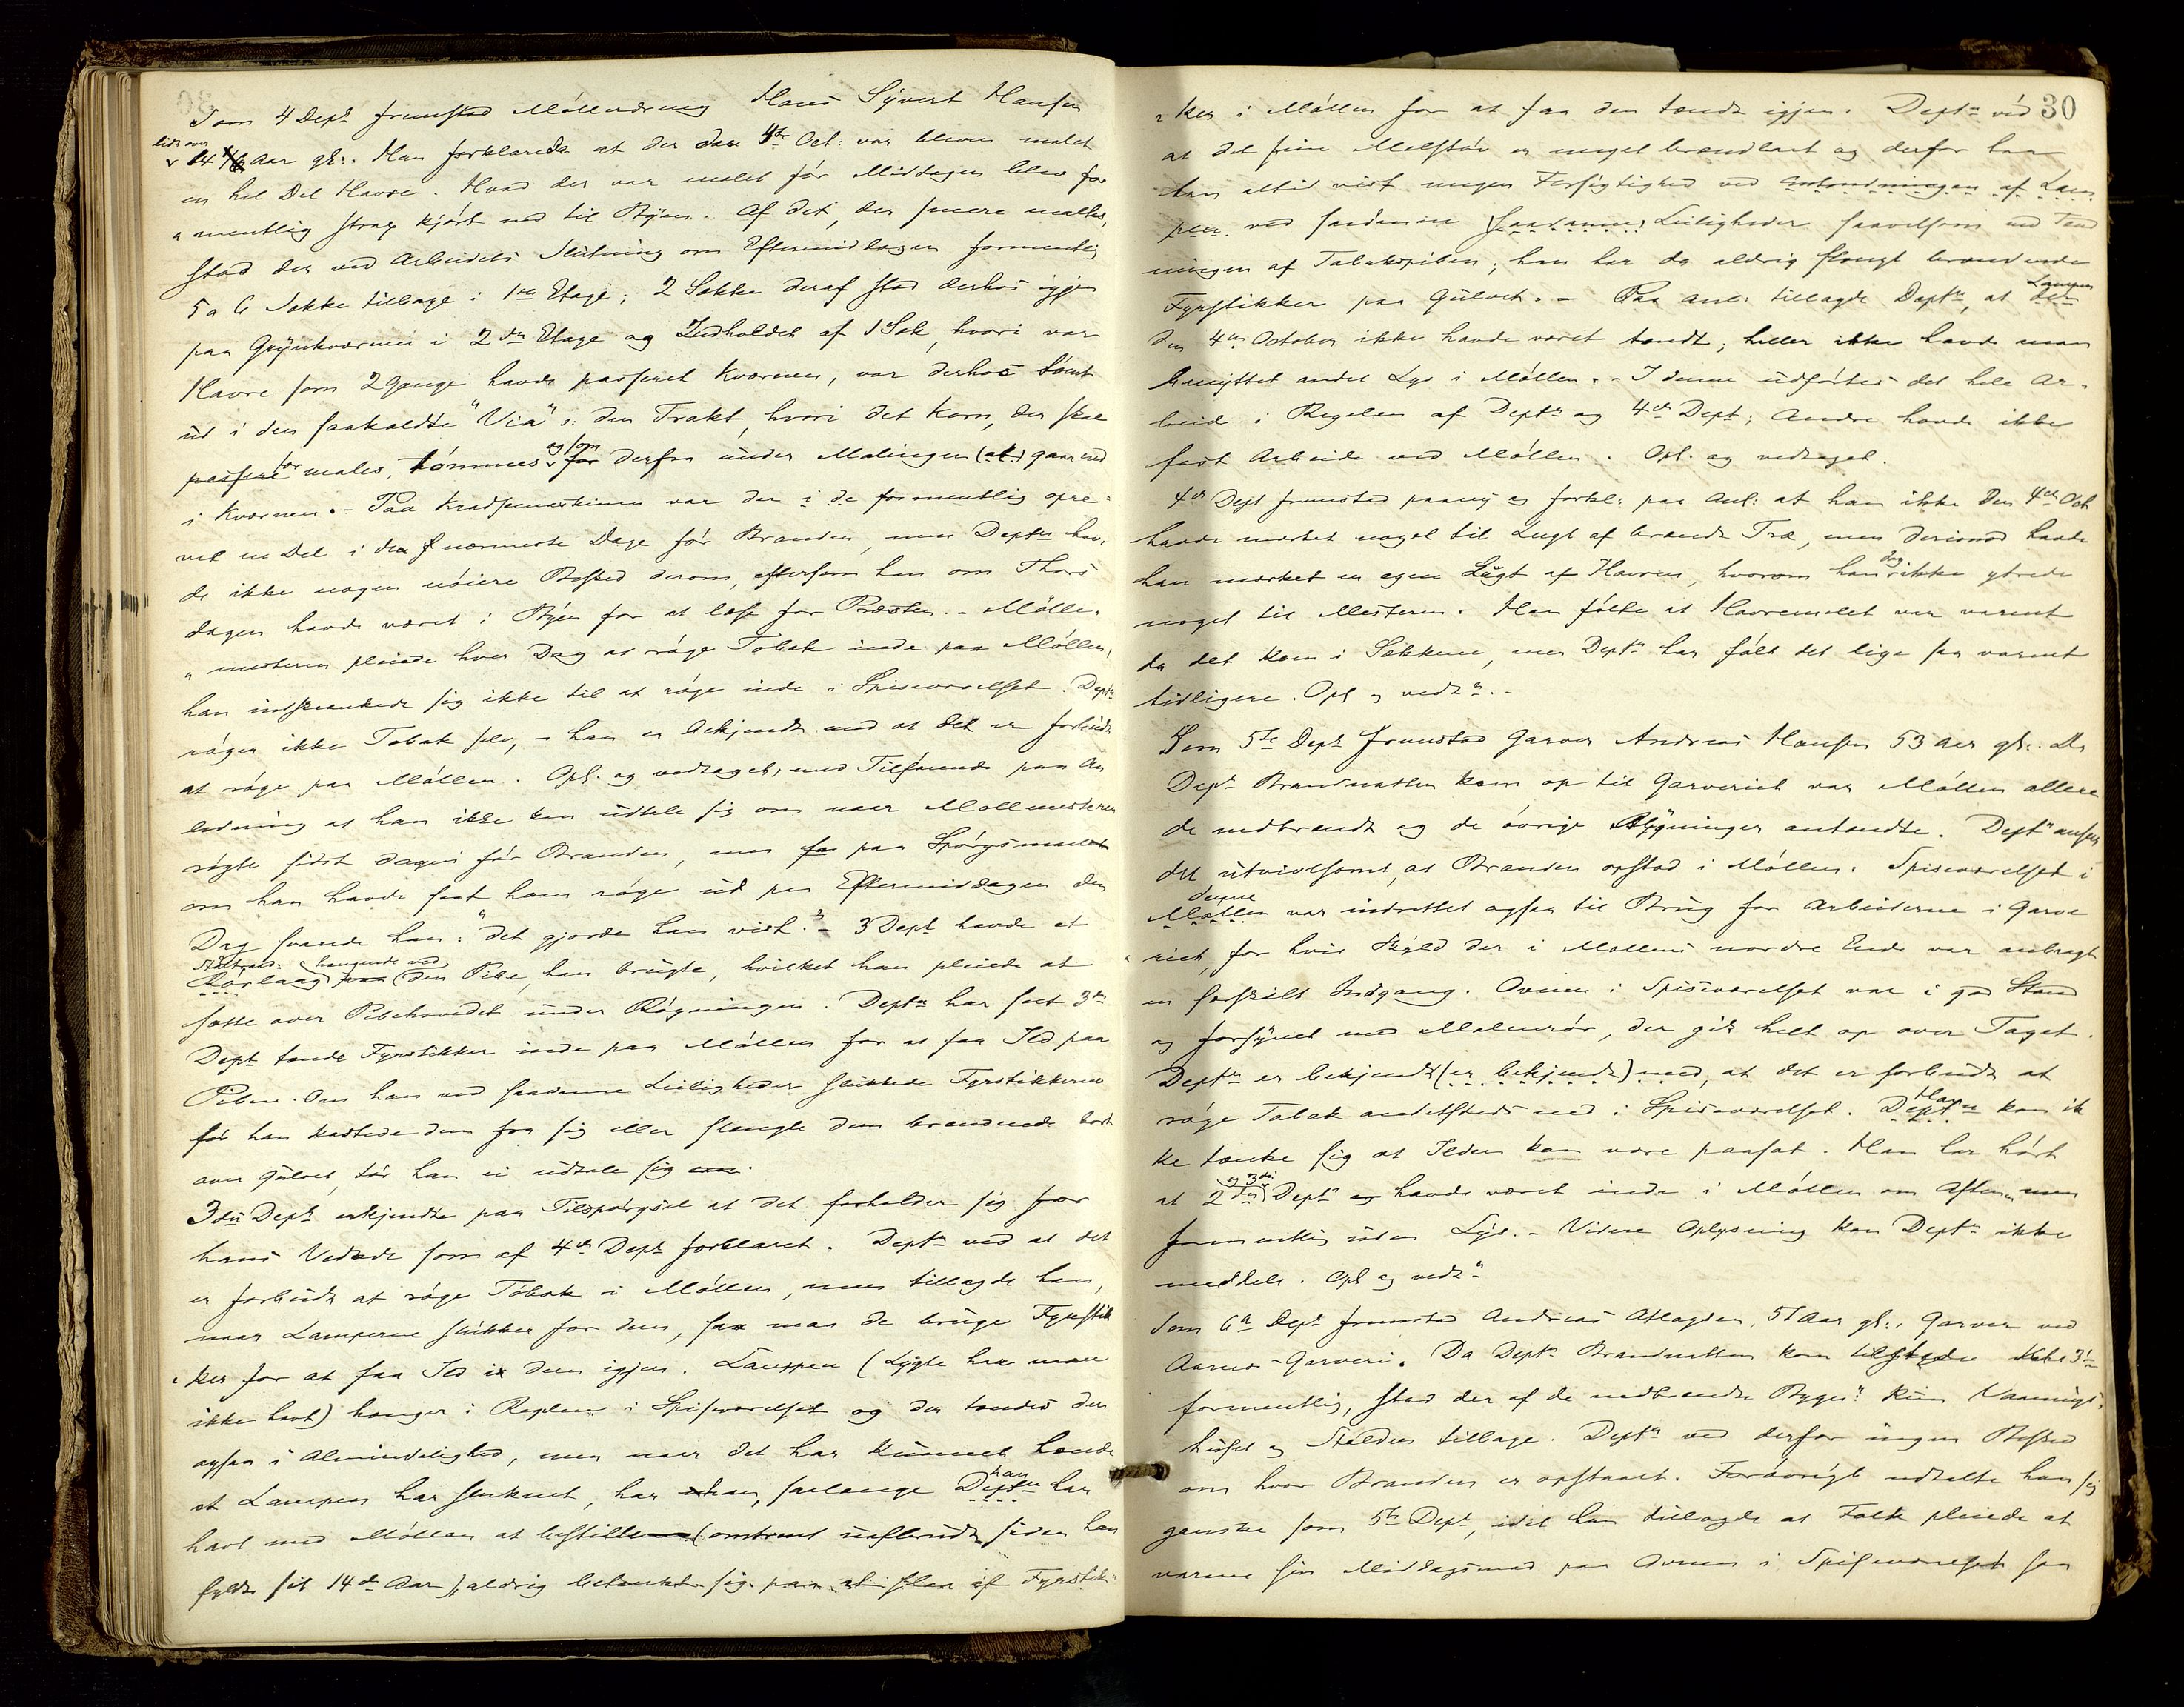 Som 4 Dept fremstod Møllerdreng Hans Sivert Hansen
lidt over
14 Aar gl:. Han forklarede at der den 4de Oct: var bleven malet
en hel Del Havre. Hvad der var malet før Middagen blev for
mentlig strax kjørt ned til Byen. Af det, der senere maltes,
stod der ved Arbeidets Slutning om Eftermiddagen formentlig
5 a 6 Sække tilbage i 1ste Etage; 2 Sække deraf stod derhos igjen
paa Grynkværnen i 2den Etage og Indholdet af 1 Sæk, hvori var
Havre som 2 Gange havde passeret Kværnen, var derhos tømt
ud i den saakaldte "Via" ɔ: den Trakt, hvori det Korn, der skal
passere males, tømmes og som derfra under Malingen (at) gaar ned
i Kværnen. - Paa Kradsemaskinen var der i de formentlig
vel en Del i de nærmeste Dage før Branden, men Deptn hav,
de ikke nogen nøiere Besked derom, eftersom han om Thors
dagen havde været i Byen for at læse for Præsten. - Mølle-
mesteren pleiede hver Dag at røge Tobak inde paa Møllen,
han indskrænkede sig ikke til at røge inde i Spiseværelset. Deptn
røger ikke Tobak selv, - han er bekjendt med at det er forbudt
at røge paa Møllen. Opl. og vedtaget, med Tilføiende paa An
ledning at han ikke kan udtale sig om naar Møllmesteren
røgte sidst Dagen før Branden, men paa Spørgsmaalet
om han havde seet ham røge ud paa Eftermiddagen den
Dag svarede han: "det gjorde han vist." - 3 Dept havde et
hængende ved
Rørlaag paa den Pibe, han brugte, hvilket han pleiede at
sætte over Pibehovedet under Røgningen. Deptn har seet 3die
Dept tænde Fyrstikker inde paa Møllen for at faa Ild paa
Piben. Om han ved saadanne Leiligheder slukkede Fyrstikkerne
før han kastede dem fra sig eller slængte dem brændende bort
over Gulvet, tør han ei udtale sig om.
3die Dept erkjendte paa Tilspørgsel at det forholder sig for
hans Vedkde som af 4de Dept forklaret. Deptn ved at det
er forbudt at røge Tobak i Møllen, men tillagde han,
naar Lamperne slukkes for dem, saa maa de bruge Fyrstik
ker for at faa Ild i dem igjen. Lampen (Lygte har man
ikke havt) hænger i Reglen i Spiseværelset og der tændes den
ogsaa i Almindelighed, men naar det har kunnet hænde
han
at Lampen har slukket, har han, saalænge Deptn har
havt med Møllen at bestille (omtrent uafbrudt siden han
fyldte sit 14de Aar), aldrig betænkt sig paa at slaa af Fyrstik-
30
ker i Møllen for at faa den tændt igjen. Deptn véd
at det fine Melstøv er meget brændbart og derfor har
han altid vist megen Forsigtighed ved Antændningen af Lam
pen ved saadanne (saadanne) Leiligheder saavelsom ved Tænd
ningen af Tobakspiben; han har da aldrig slængt brændende
Lampen
Fyrstikker paa Gulvet. - Paa Anl: tillagde Deptn, at den
den 4de October ikke havde været tændt; heller ikke havde man
benyttet andet Lys i Møllen. - I denne udførtes det hele Ar-
beid i Regelen af Deptn og 4de Dept; Andre havde ikke
fast Arbeide ved Møllen. Opl. og vedtaget.
4de Dept fremstod paany og forkl: paa Anl: at han ikke den 4de Oct
havde mærket noget til Lugt af brændt Træ, men derimod havde
dog
han mærket en egen Lugt af Havren, hvorom han ikke ytrede
noget til Mesteren. Han følte at Havremelet var varmt
da det kom i Sækkene, men Deptn har følt det lige saa varmt
tidligere. Opl og vedtn. -
Som 5te Dept fremstod Garver Andreas Hansen 53 Aar gl:. Da
Deptn Brandnatten kom op til Garveriet var Møllen allere
de nedbrændt og de øvrige Bygninger antændte. Deptn anser
det utvivlsomt, at Branden opstod i Møllen. Spiseværelset i
denne
Møllen var indrettet ogsaa til Brug for Arbeiderne i Garve
riet, for hvis Skyld der i Møllens nordre Ende var anbragt
en særskilt Indgang. Ovnen i Spiseværelset var i god Stand
og forsynet med Malmrør, der gik helt op over Taget.
Deptn er bekjendt (er bekjendt) med, at det er forbudt at
Han
røge Tobak andetsteds end i Spiseværelset. Deptn kan ik
ke tænke sig at Ilden kan være paasat. Han har hørt
og 3die
at 2den Deptn og havde været inde i Møllen om Aftenen, men
formentlig uden Lys. - Videre Oplysning kan Deptn ikke
meddele. Opl og vedtn
Som 6te Dept fremstod Andreas 51 Aar gl:, Garver ved
Aarnes-Garveri. Da Deptn Brandnatten kom tilstede Kl. 3
formentlig, stod der af de nedbrændte Bygnr kun Vaanings
huset og Stalden tilbage. Deptn ved derfor ingen Besked
om hvor Branden er opstaaet. Forøvrigt udtalte han sig
ganske som 5te Dept, idet han tillagde at Folk pleiede at
varme sin Middagsmad paa Ovnen i Spiseværelset saa